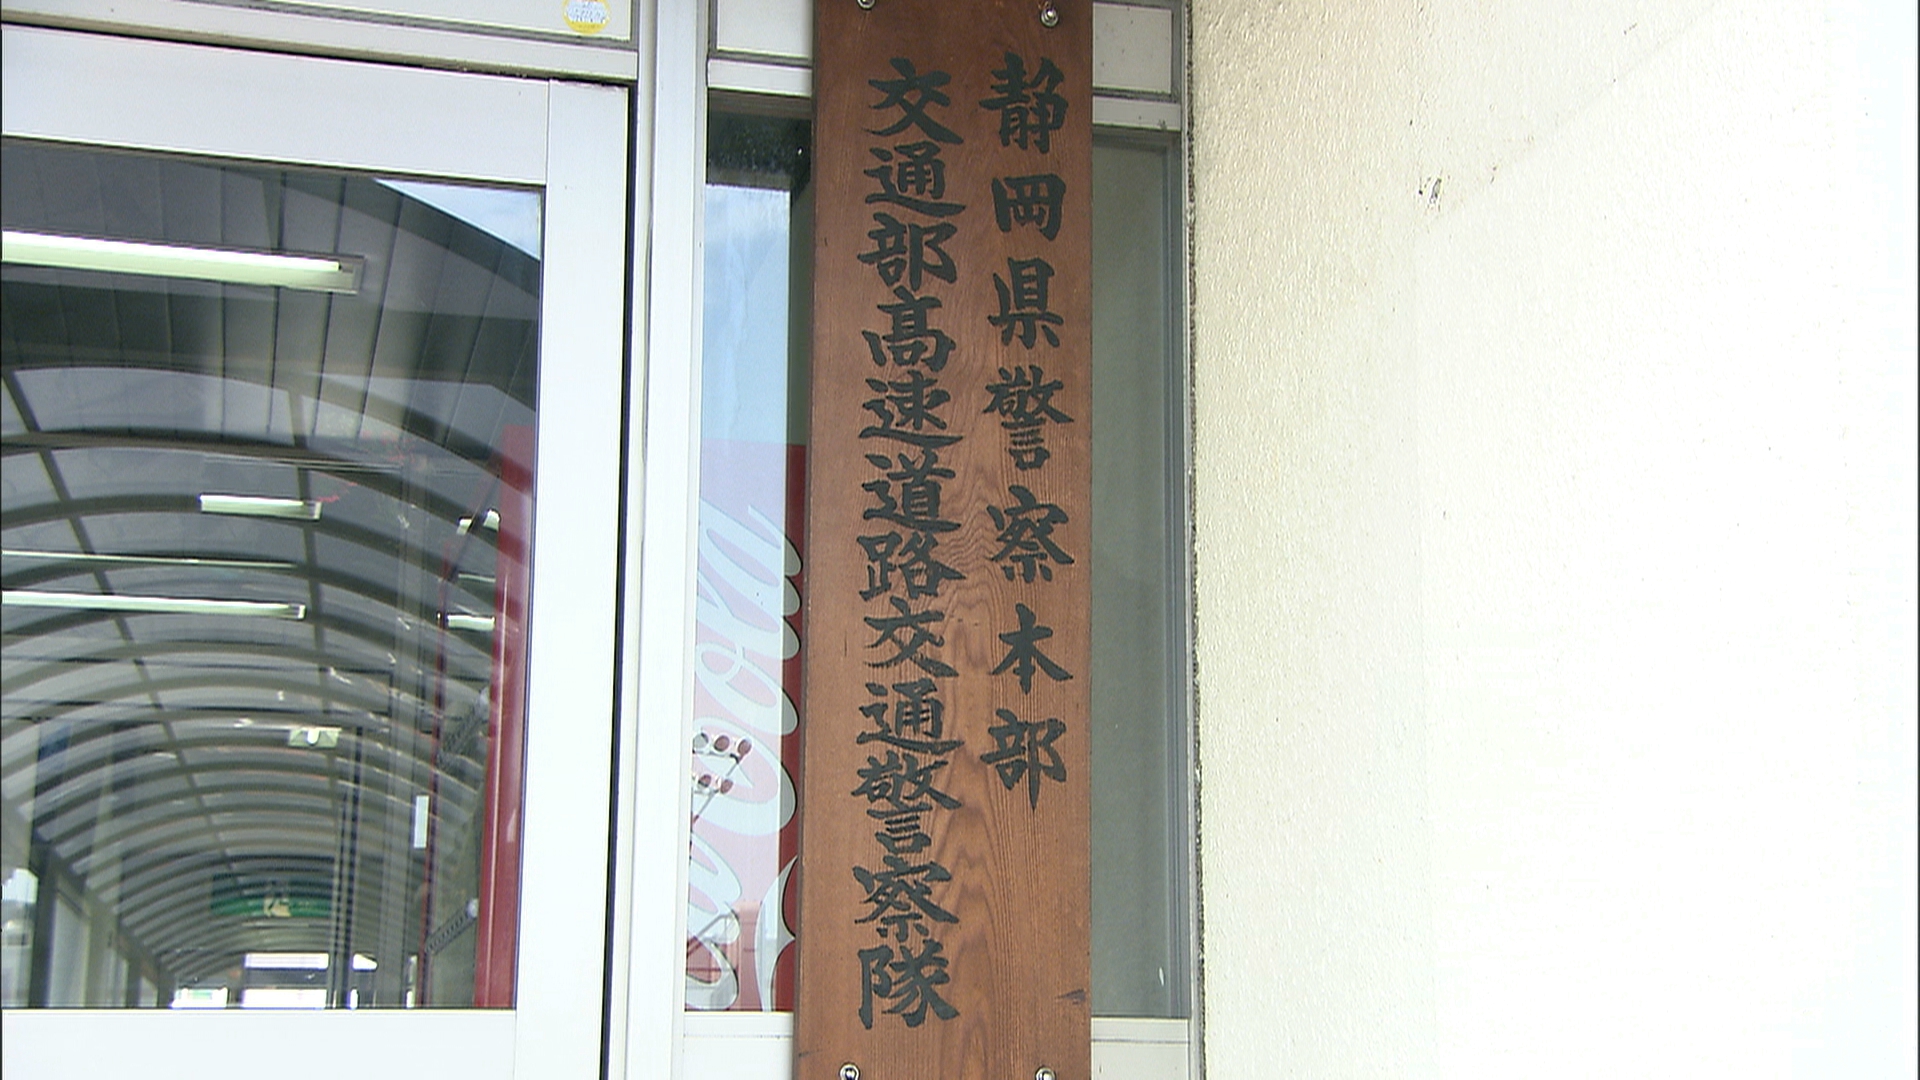 静岡県警察本部
交通部高速道路交通警察隊
Coca-Cola